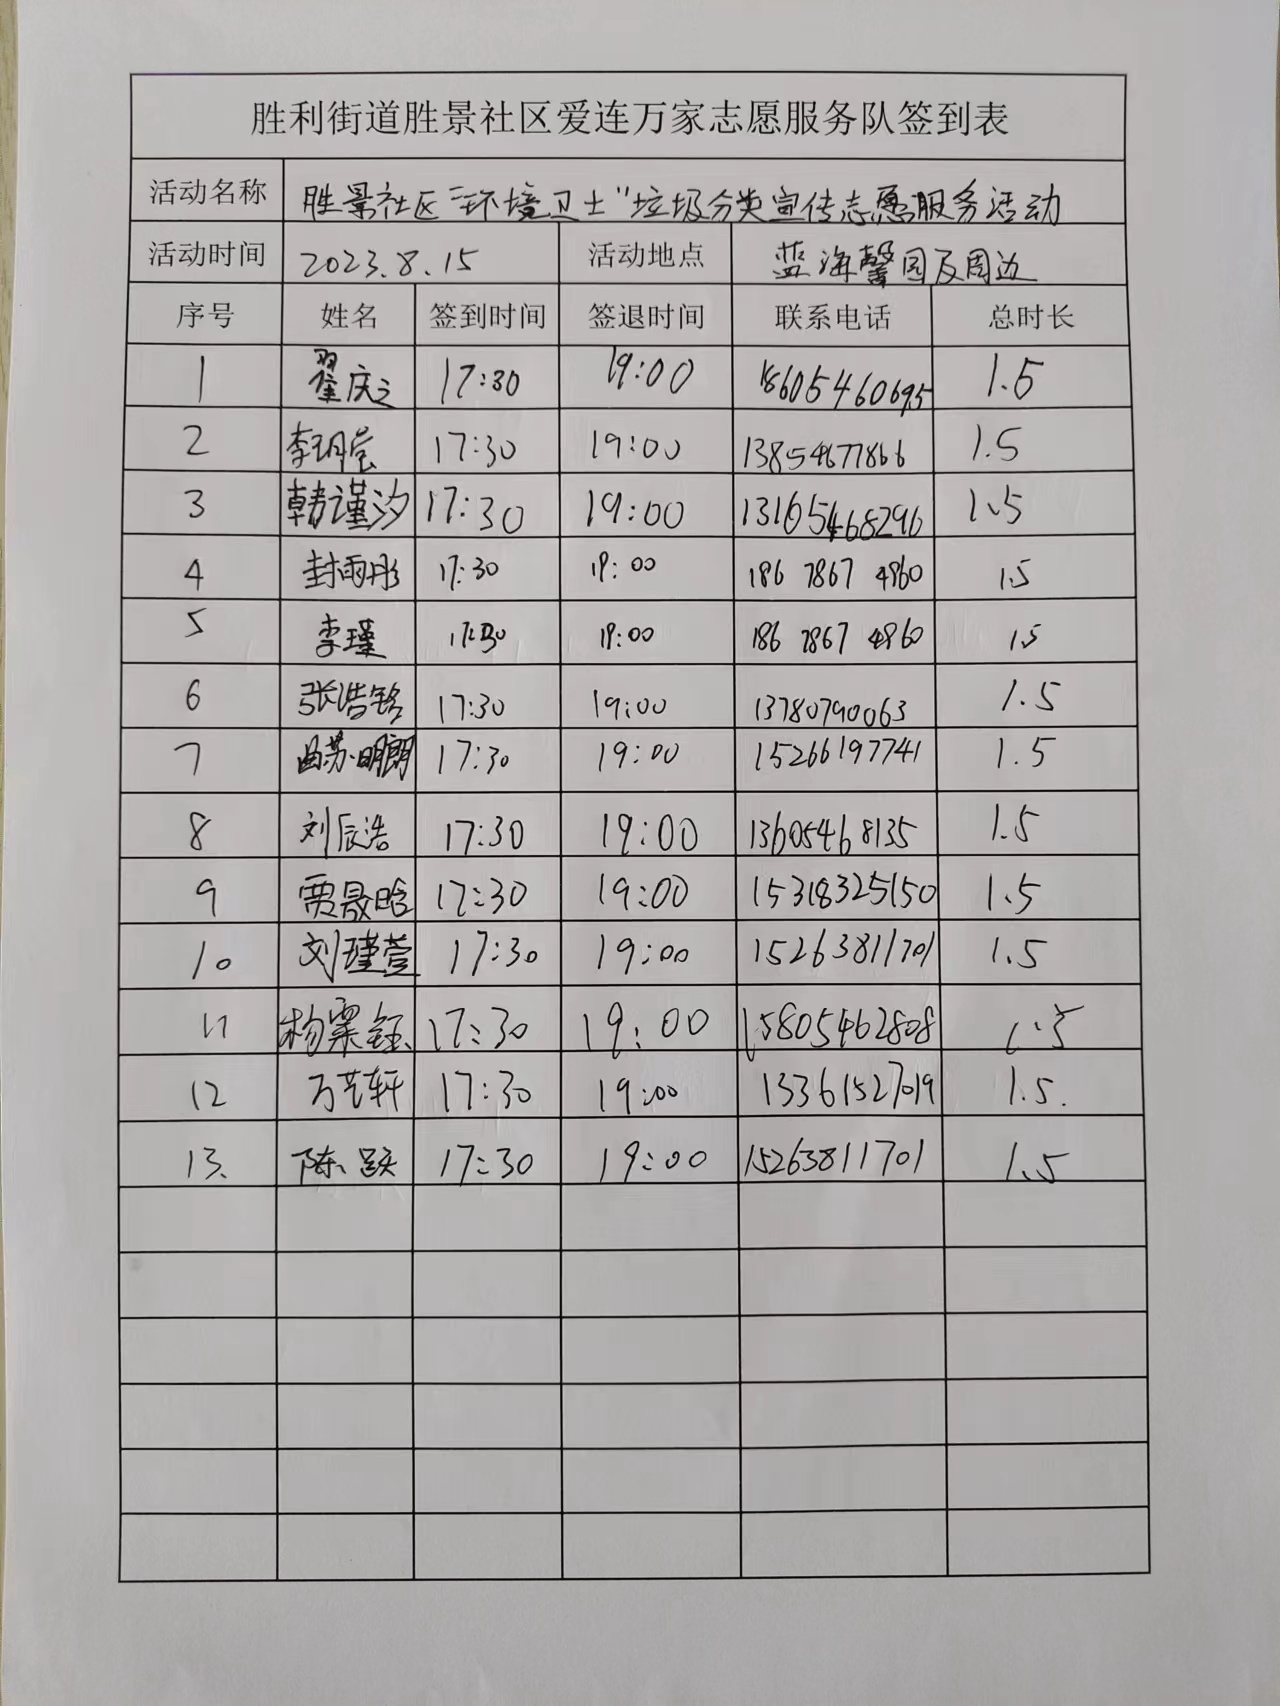 胜利街道胜景社区爱连万家志愿服务队签到表
活动名称 胜景社区“环境卫士”垃圾分类宣传志愿服务活动
活动时间 2023.8.15 活动地点 蓝海馨园及周边
序号 姓名 签到时间 签退时间 联系电话 总时长
1 翟庆之 17:30 19:00 18605460695 1.5
2 李玥莹 17:30 19:00 13854677866 1.5
3 韩谨汐 17:30 19:00 1.5
4 封雨彤 17:30 19:00 186 7867 4960 1.5
5 李瑾 17:30 19:00 186 7867 4960 1.5
6 张浩铭 17:30 19:00 13780790063 1.5
7 曲苏明朗 17:30 19:00 15266197741 1.5
8 刘辰浩 17:30 19:00 13605468135 1.5
9 贾晟晗 17:30 19:00 15318325150 1.5
10 刘瑾萱 17:30 19:00 15263811701 1.5
11 17:30 19:00 15805462808 1.5
12 万芸轩 17:30 19:00 13361527019 1.5.
13. 陈跃 17:30 19:00 15263811701 1.5